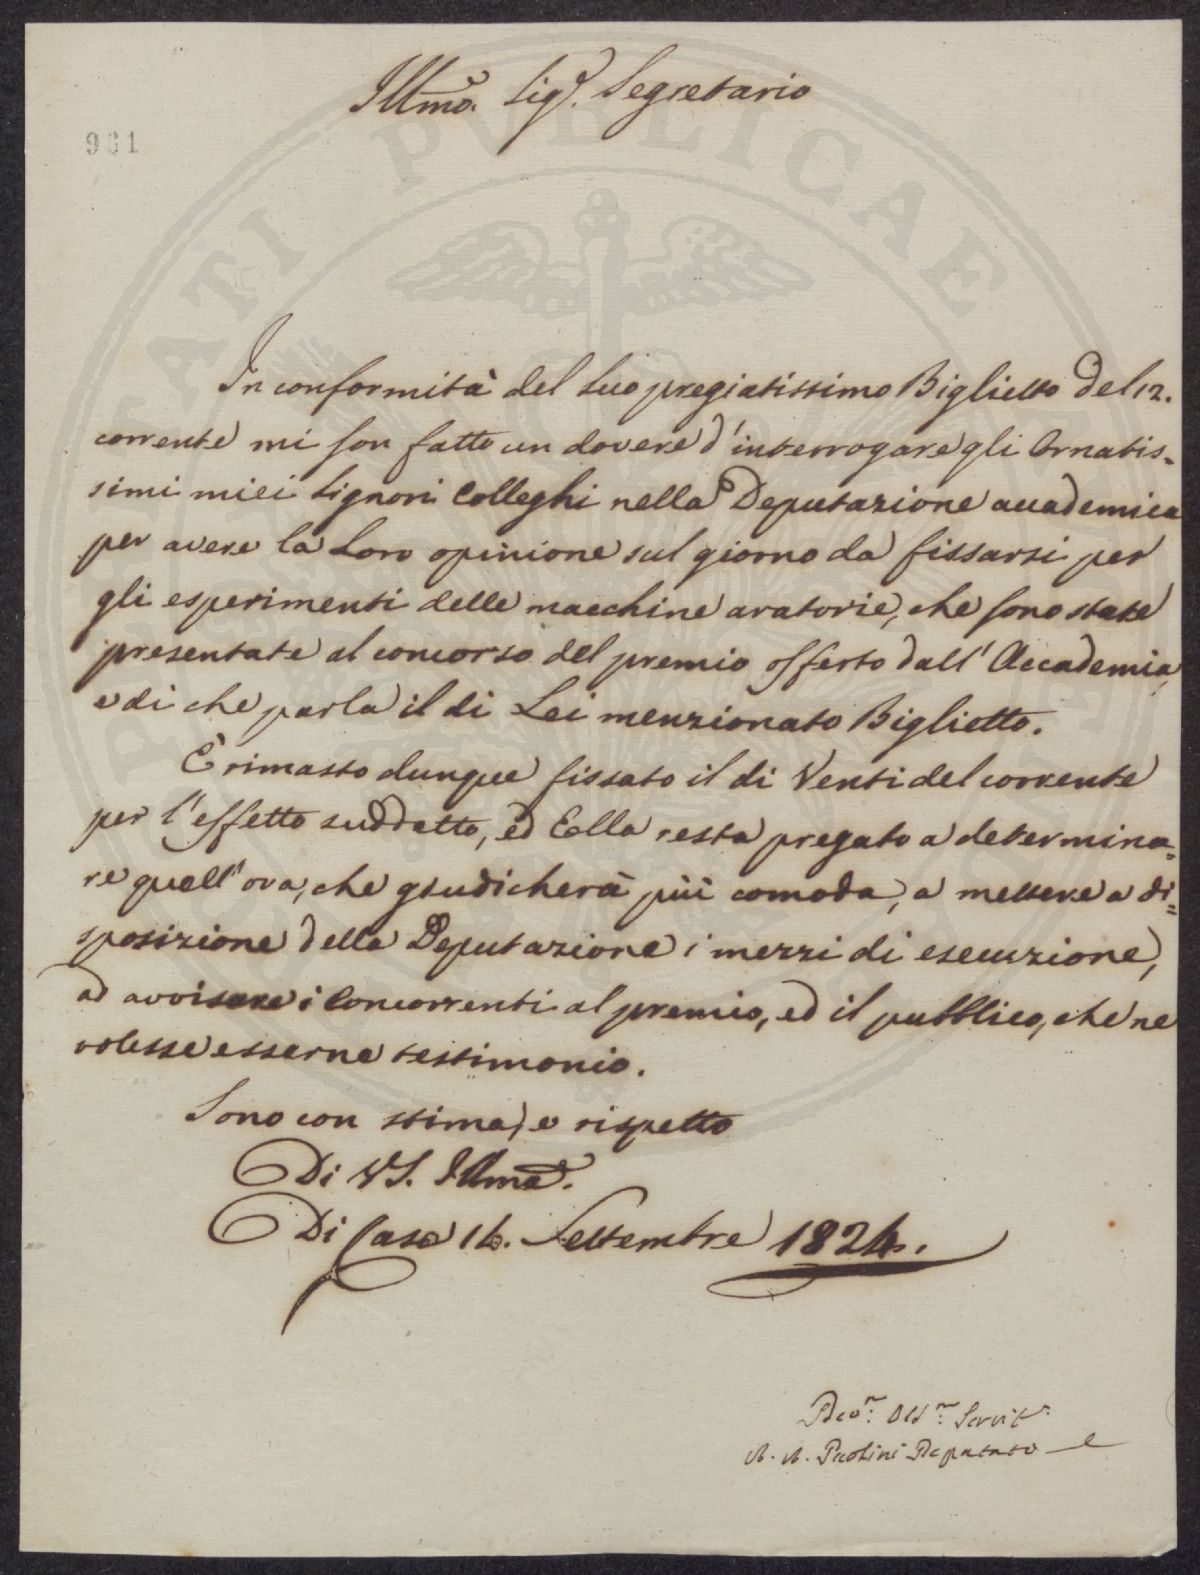 Illmo. Sigr. Segretario
931
In conformità del Suo pregiatissimo Biglietto del 12.
corrente mi son fatto un dovere d'interrogare gli Ornatis-
simi miei Signori Colleghi nella Deputazione accademica
per avere la Loro opinione sul giorno da fissarsi per
gli esperimenti delle macchine aratorie, che sono state
presentate al concorso del premio offerto dall'Accademia,
e di che parla il di Lei menzionato Biglietto.
È rimasto dunque fissato il dì Venti del corrente
per l'effetto suddetto, ed Ella resta pregato a determina=
re quell'ora, che giudicherà più comoda, a mettere a di=
sposizione della Deputazione i mezzi di esecuzione,
ad avvisare i Concorrenti al premio, ed il pubblico, che ne
volesse esserne testimonio.
Sono con stima, e rispetto
Di VS. Illma.
Di Casa 16. Settembre 1824.
Devr. Obbr. Servitr.
A. A. Paolini Deputato
PUBLICAE